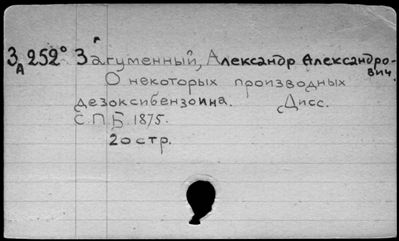 З А 252° Загуменный, Александр Александро-
вич.
О некоторых производных
дезоксибензоина. Дисс.
С.П.Б. 1875.
20 стр.